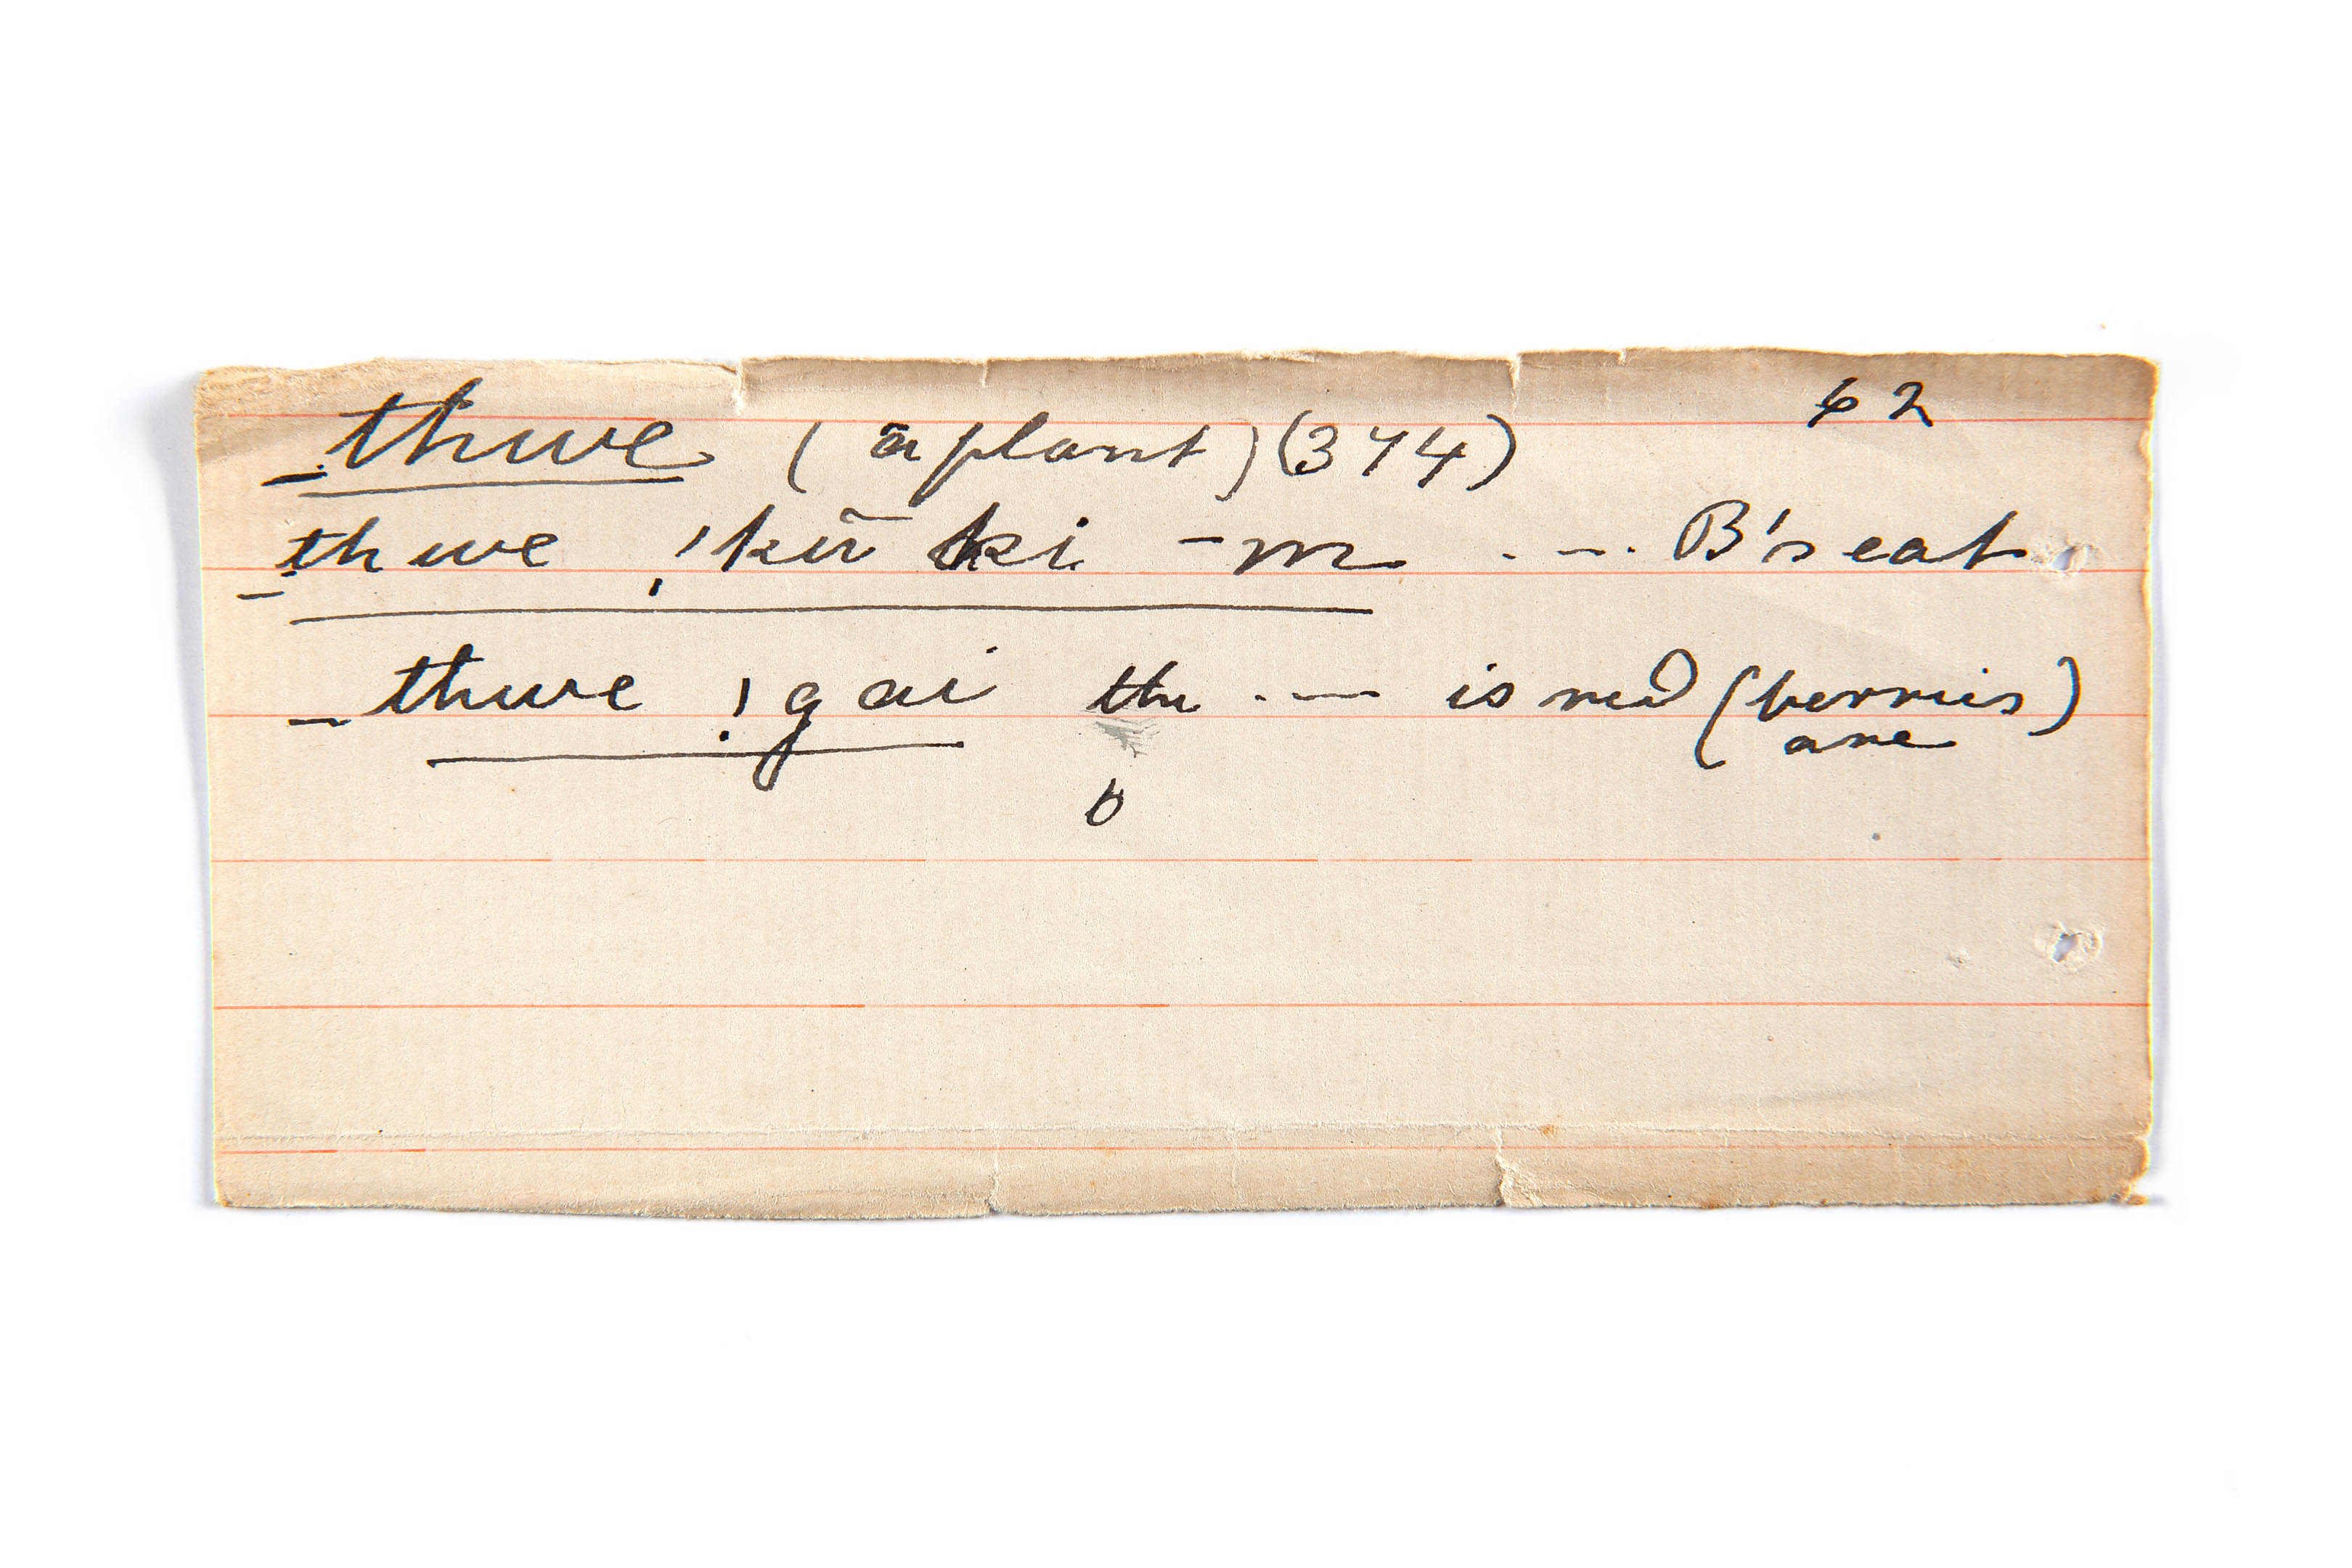 _thwe (a plant) (374) 62
_thwe !kũ ki -m .--. B's eat
_thwe !gai the .-- is red (berries)
are
b